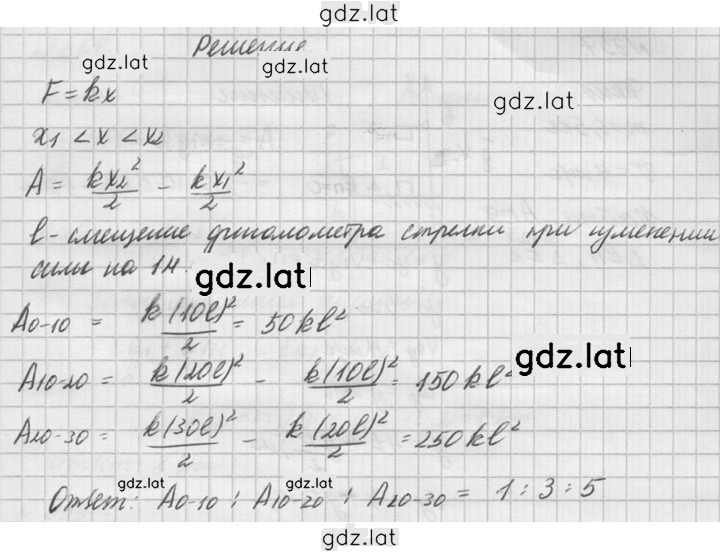 gdz.lat
Решение
gdz.lat
gdz.lat
F = kx
x₁ < x < x₂
A = kx₂²/2 − kx₁²/2
ℓ - смещение динамометра стрелки при изменении
силы на 1Н.
gdz.lat
A₀₋₁₀ = k(10ℓ)²/2 = 50kℓ²
gdz.lat
A₁₀₋₂₀ = k(20ℓ)²/2 − k(10ℓ)²/2 = 150kℓ²
A₂₀₋₃₀ = k(30ℓ)²/2 − k(20ℓ)²/2 = 250kℓ²
gdz.lat gdz.lat
Ответ: A₀₋₁₀ : A₁₀₋₂₀ : A₂₀₋₃₀ = 1 : 3 : 5
gdz.lat